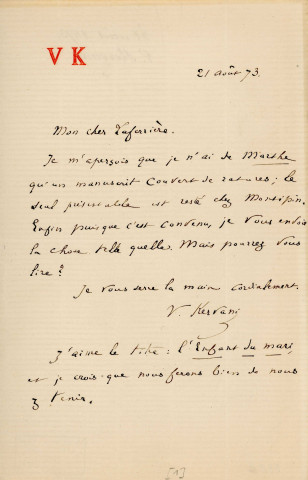 VK
21 août 73.
Mon cher Laferrière.
Je m'aperçois que je n'ai de Marthe
qu'un manuscrit couvert de ratures; le
seul présentable est resté chez Montigny.
Enfin puisque c'est convenu, je vous envoie
la chose telle quelle. Mais pourrez vous
lire?
Je vous serre la main cordialement.
V. Kervani
J'aime le titre: l'Enfant du mari,
et je crois que nous ferons bien de nous
y tenir.
[1]